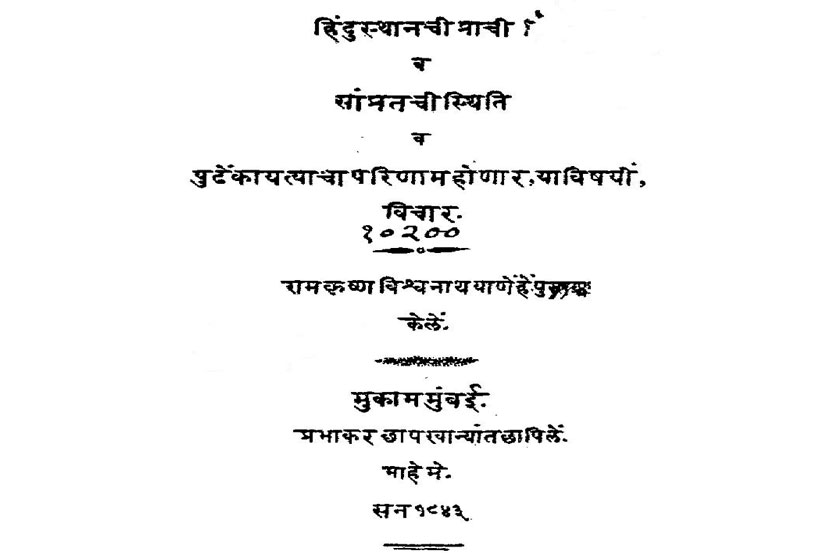 हिंदुस्थानची प्राची
व
सांप्रतची स्थिति
व
पुढें काय त्याचा परिणाम होणार, याविषयीं,
विचार.
१०२००
रामकृष्ण विश्वनाथ याणें हें
केलें.
मुकाम मुंबई.
प्रभाकर छापखान्यांत छापिलें.
माहे मे.
सन १८४३